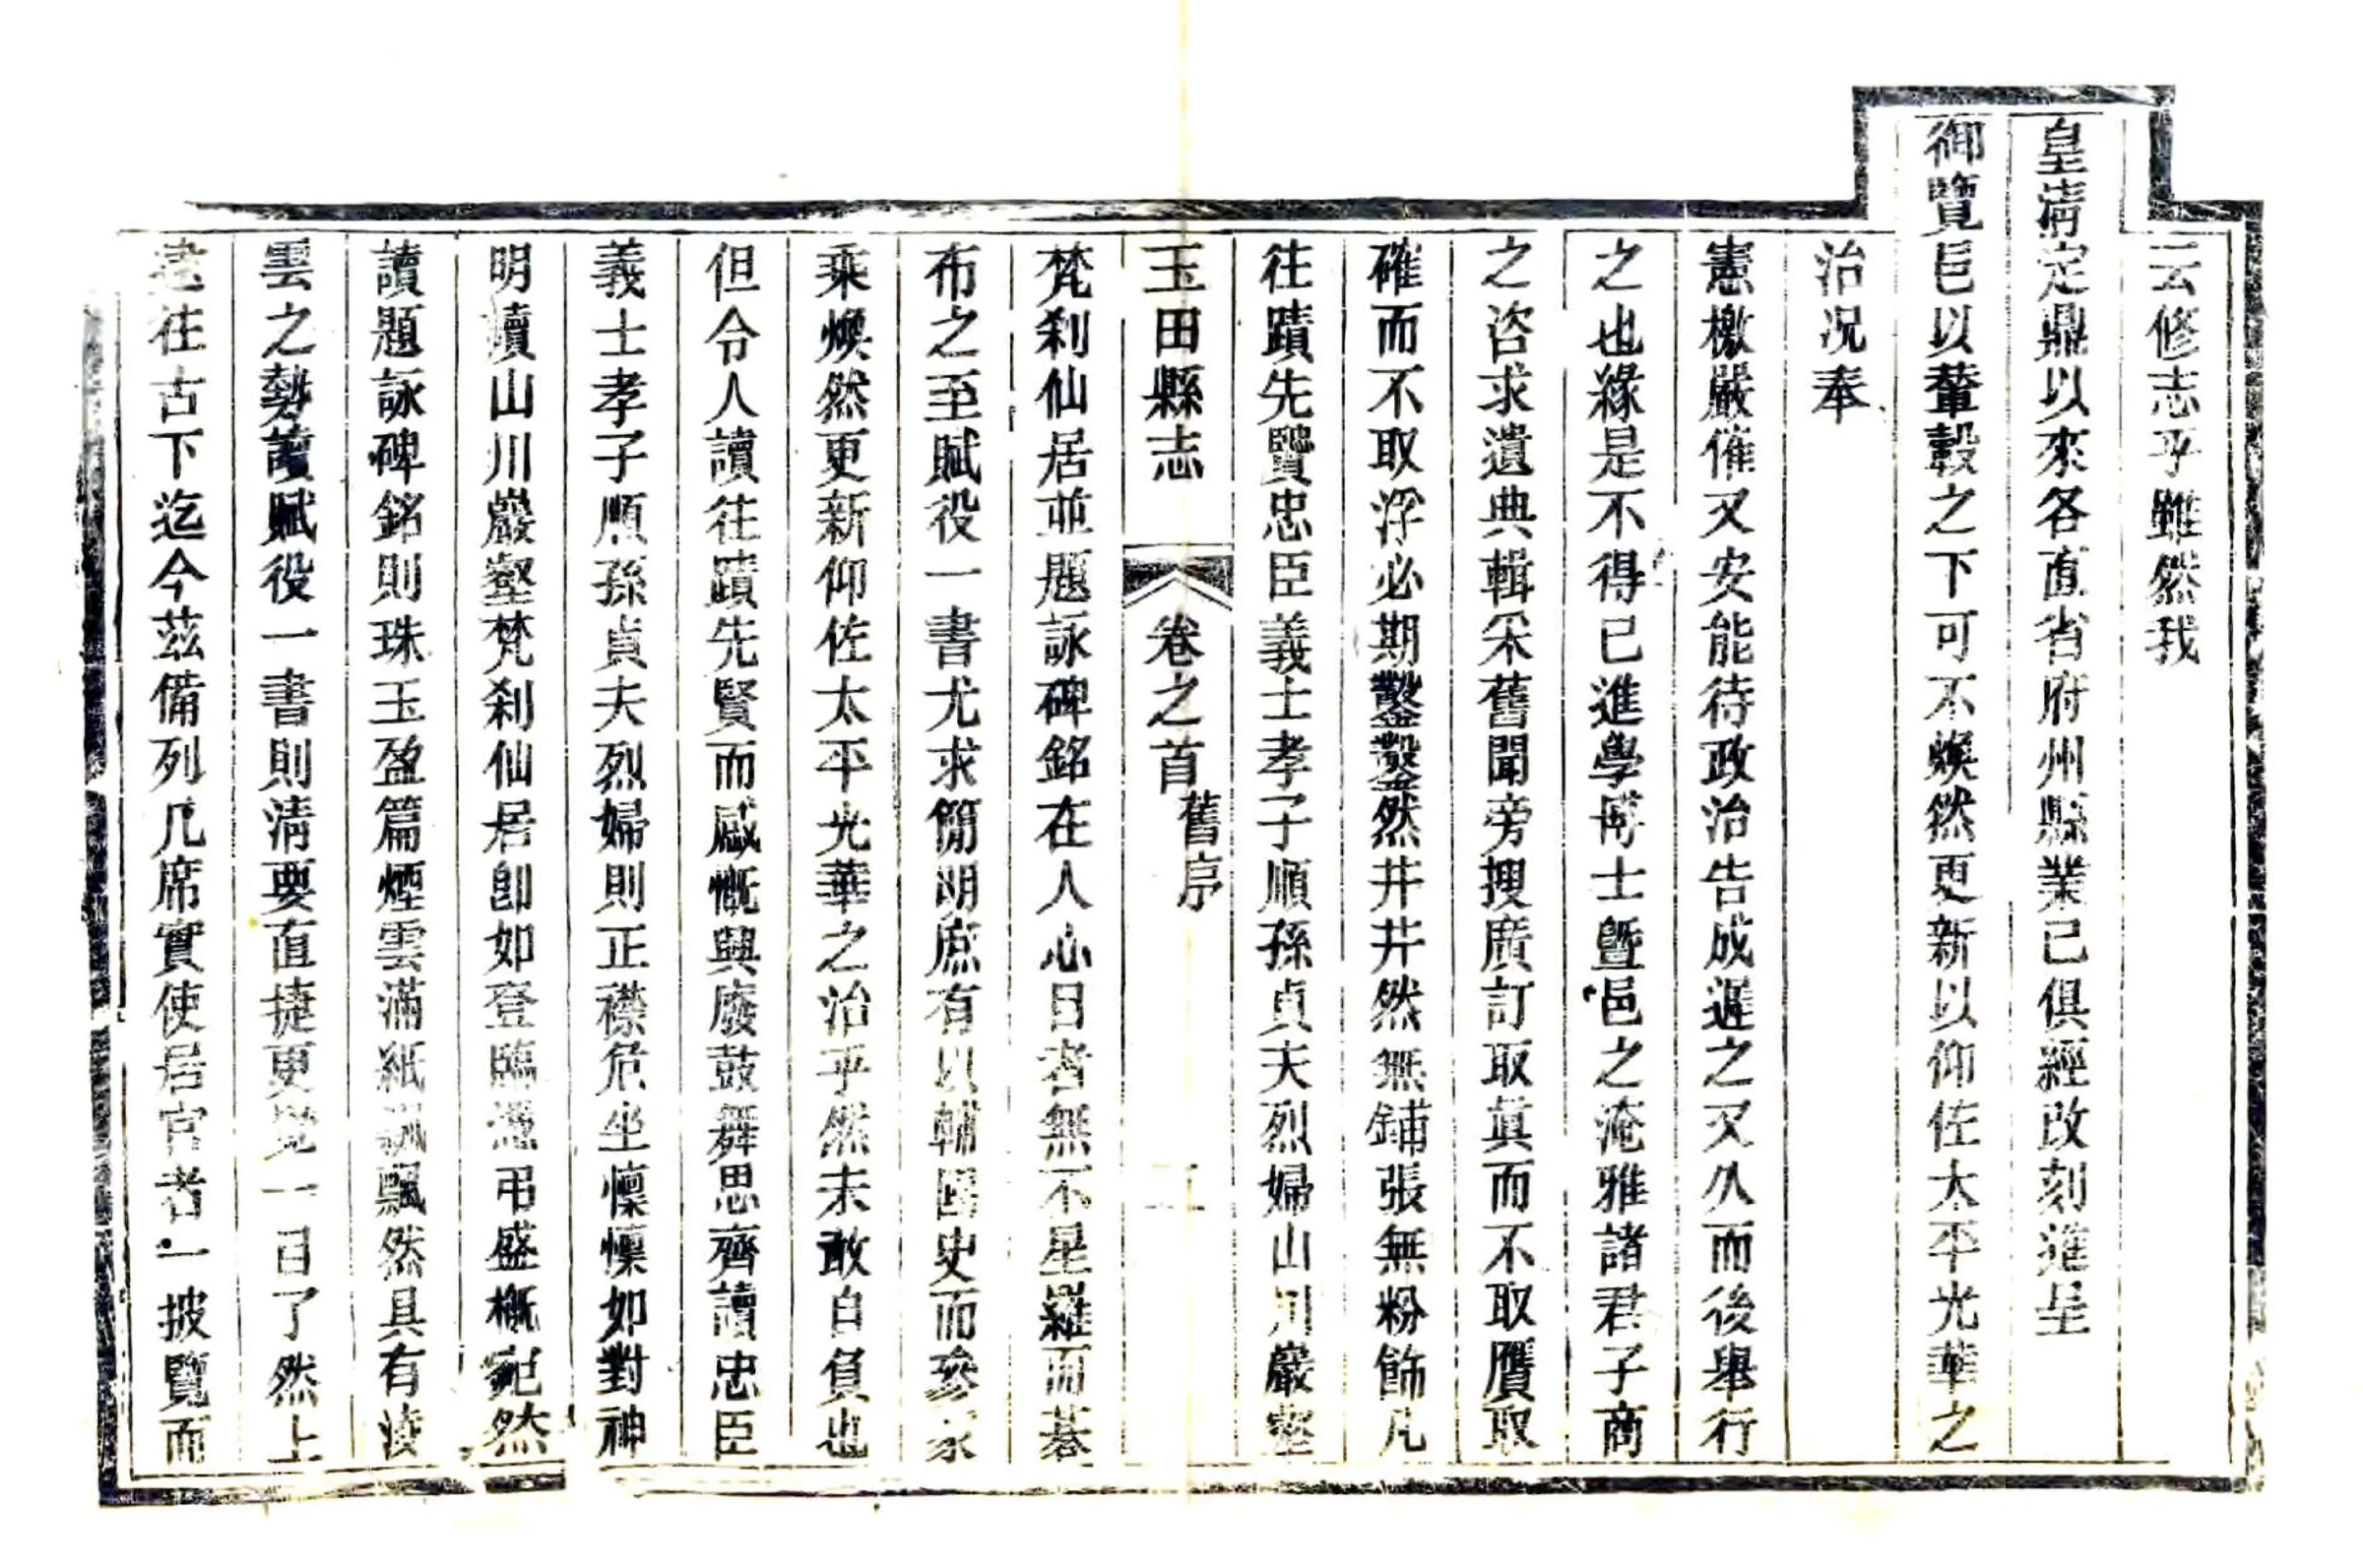 云修志乎雖然我
皇清定鼎以來各直省府州縣業已俱經改刻進呈
御覽邑以輦轂之下可不煥然更新以仰佐太平光華之
治况奉
憲檄嚴催又安能待政治告成遲之又久而後舉行
之也緣是不得已進學博士曁邑之淹雅諸君子商
之咨求遺典輯采舊聞旁搜廣訂取眞而不取贋取
確而不取浮必期鑿鑿然井井然無鋪張無粉飾凡
往蹟先賢忠臣義士孝子順孫貞夫烈婦山川巖壑
玉田縣志 卷之首 舊序 二
梵刹仙居並題詠碑銘在人心目者無不星羅而碁
布之至賦役一書尤求簡明庶有以輔國史而參家
乘煥然更新仰佐太平光華之治乎然未敢自負也
但令人讀往蹟先賢而感慨興廢鼓舞思齊讀忠臣
義士孝子順孫貞夫烈婦則正襟危坐懍懍如對神
明讀山川巖壑梵刹仙居卽如登臨憑弔盛槪宛然
讀題詠碑銘則珠玉盈篇煙雲滿紙飄然具有凌
雲之勢讀賦役一書則淸要直捷更覺一目了然上
往古下迄今茲備列几席實使居官者一披覽而